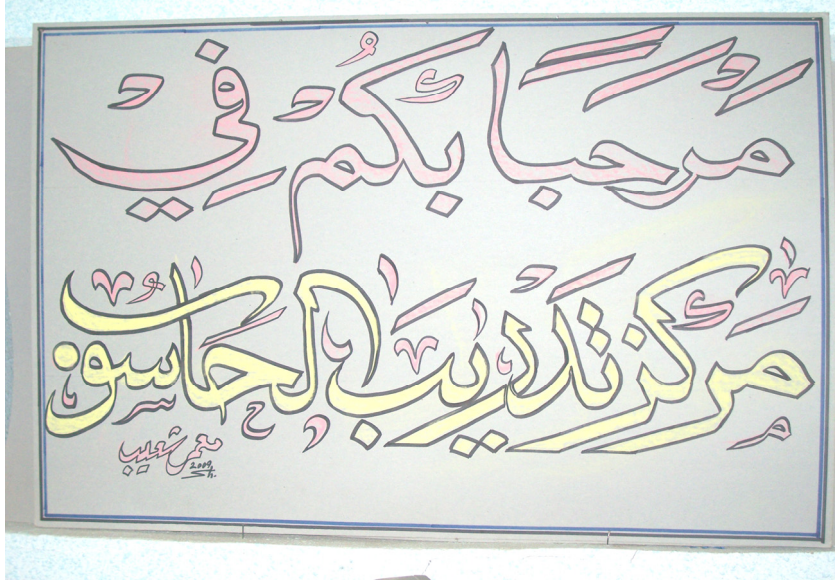 مرحباً بكم في
مركز تدريب الحاسوب
معمر شعيب
2009
Sh.